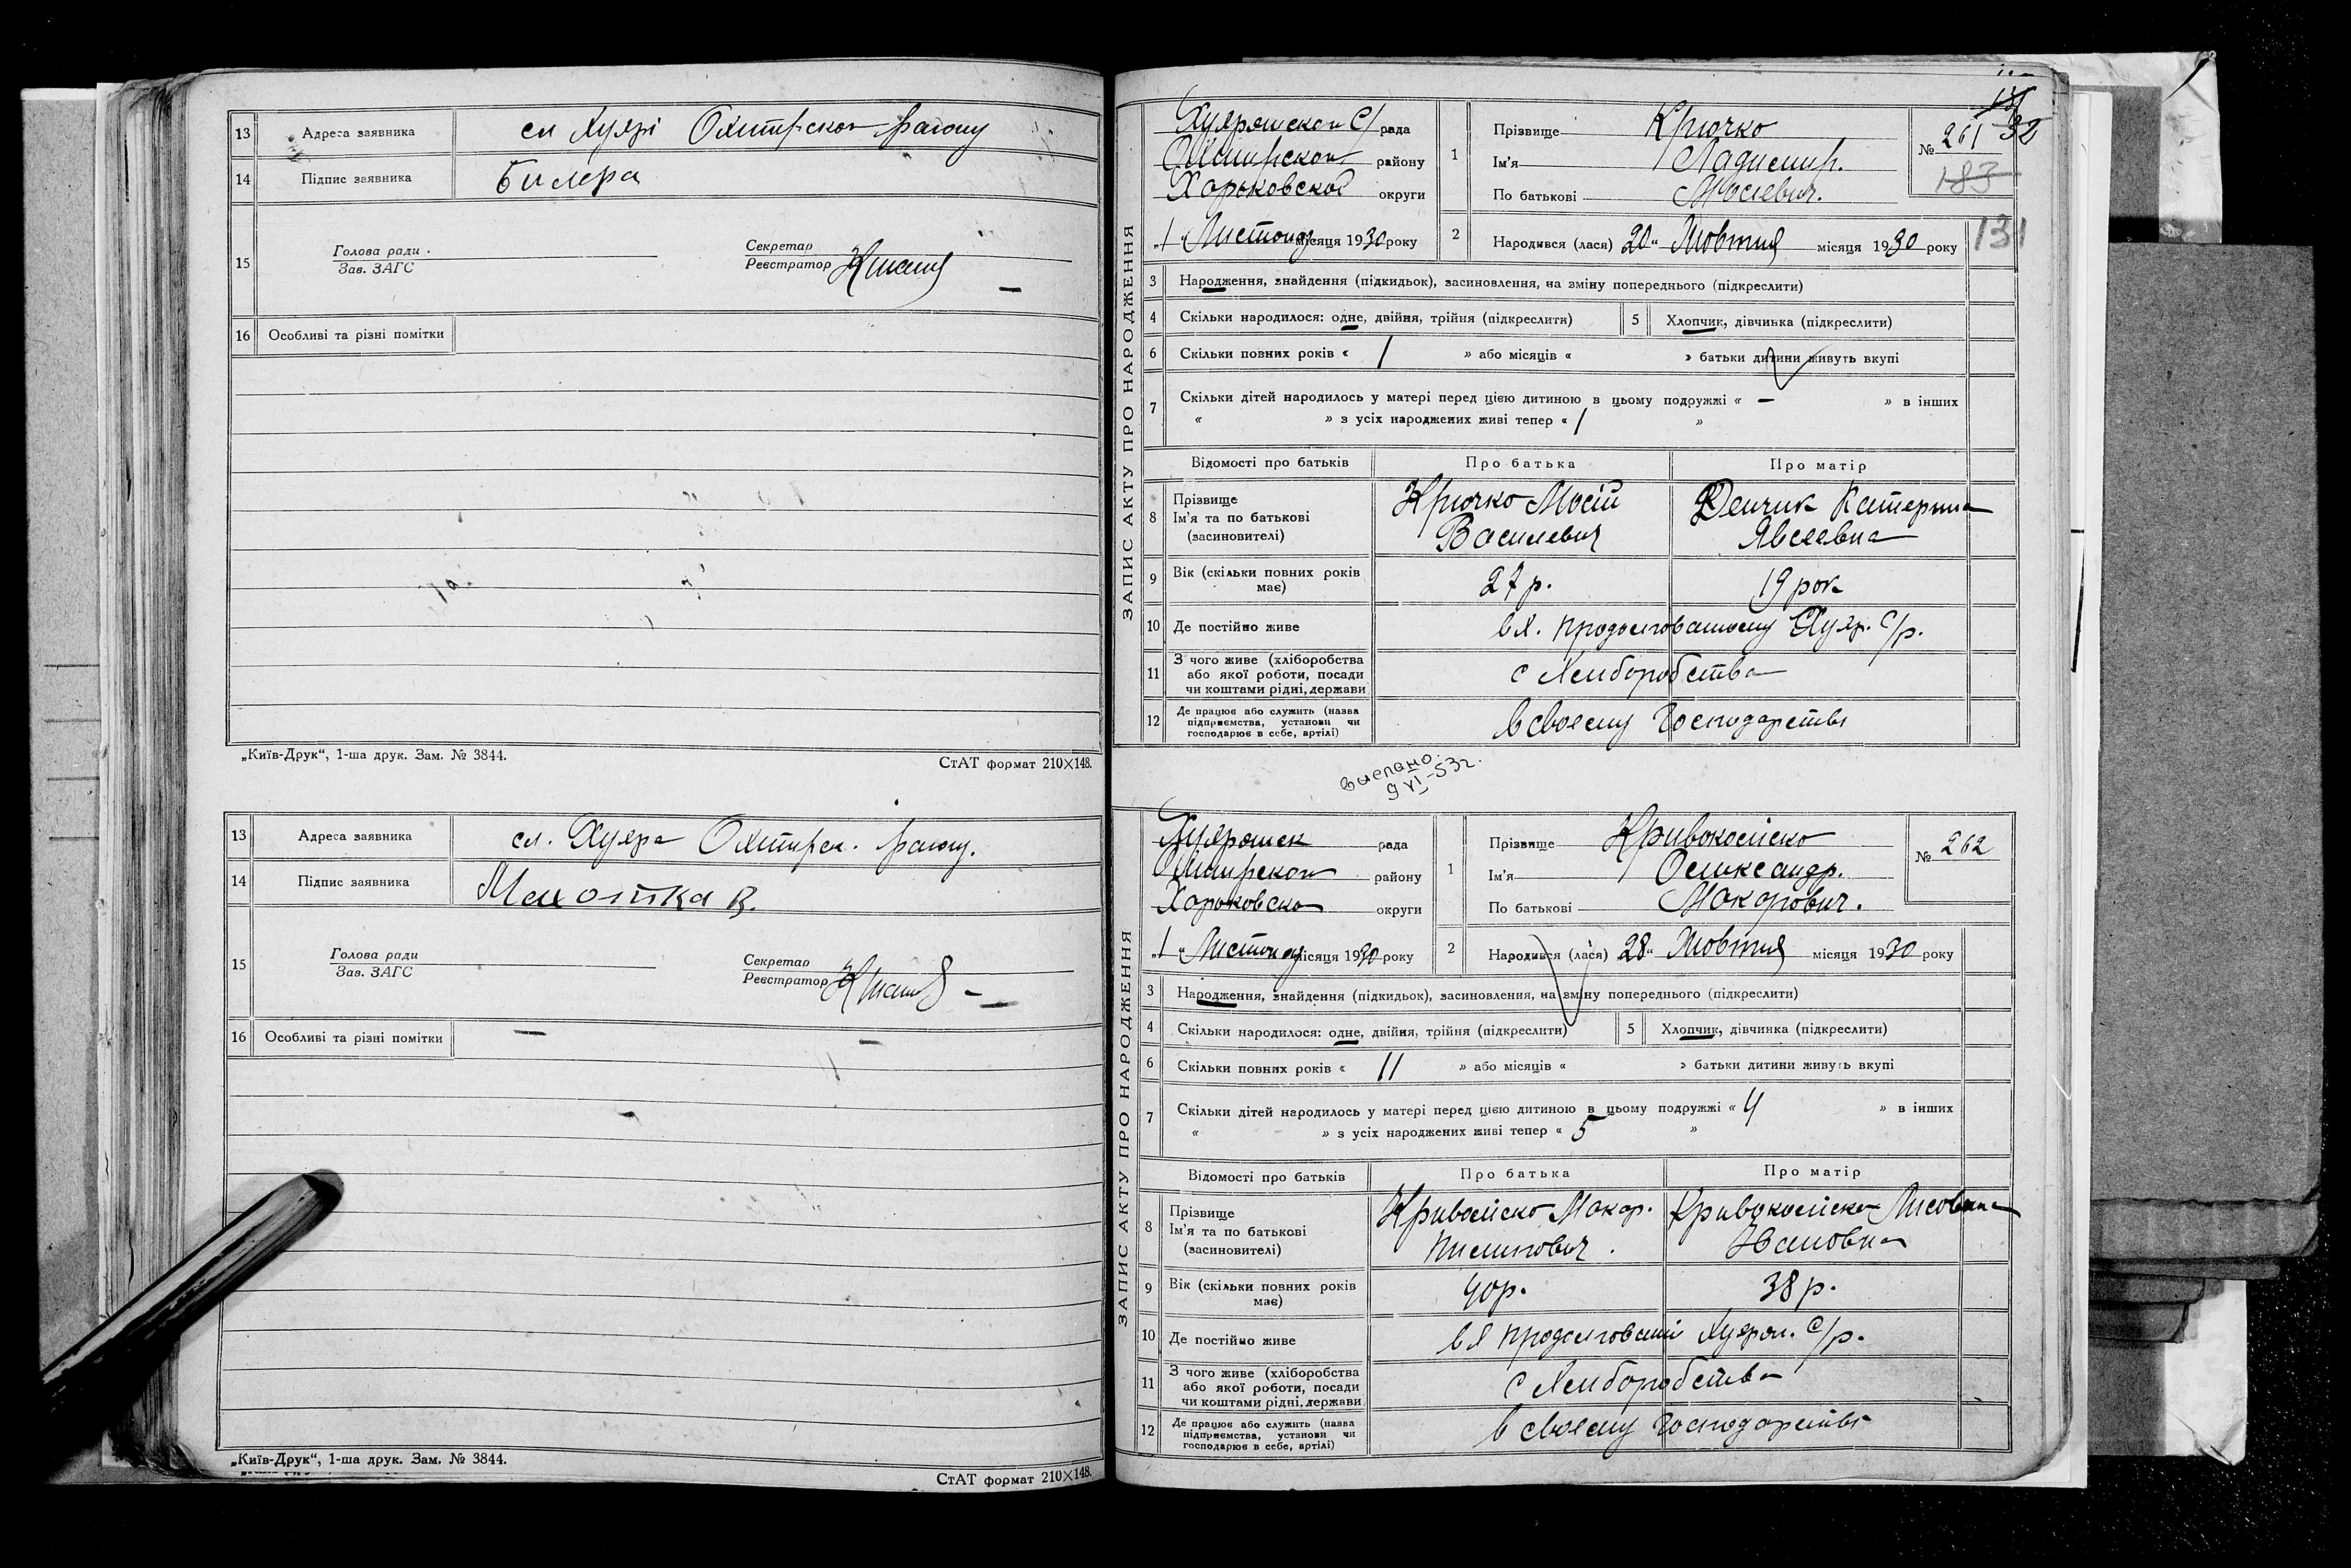 13 Адреса заявника сл Хуярі Охтирскої району
14 Підпис заявника Билера
15 Голова ради
Зав. ЗАГС
Секретар
Реєстратор
16 Особливі та різні помітки
„Київ-Друк“, 1-ша друк. Зам. № 3844.
СтАТ формат 210×148.
13 Адреса заявника сл. Хуяра Охтирск. району.
14 Підпис заявника Махотка В.
15 Голова ради
Зав. ЗАГС
Секретар
Реєстратор
16 Особливі та різні помітки
„Київ-Друк“, 1-ша друк. Зам. № 3844.
СтАТ формат 210×148.
32
ЗАПИС АКТУ ПРО НАРОДЖЕННЯ
рада
району
Харьковской округи
„1“ Листопад місяця 1930 року
1 Прізвище Крючко
Ім'я
По батькові Мосіевич.
№ 261
183
131
2 Народився (лася) 20“ Жовтня місяця 1930 року
3 Народження, знайдення (підкидьок), засиновлення, на зміну попереднього (підкреслити)
4 Скільки народилося: одне, двійня, трійня (підкреслити) 5 Хлопчик, дівчинка (підкреслити)
6 Скільки повних років « 1 » або місяців « » батьки дитини живуть вкупі
7 Скільки дітей народилось у матері перед цією дитиною в цьому подружжі « – » в інших
« » з усіх народжених живі тепер « 1 »
Відомості про батьків Про батька Про матір
8 Прізвище
Ім'я та по батькові
(засиновителі)
Крючко Мосій
Василевич
Денчик Катерина
Явсеевна
9 Вік (скільки повних років
має)
27 р. 19 рок
10 Де постійно живе Хуяр. С/р.
11 З чого живе (хліборобства
або якої роботи, посади
чи коштами рідні, держави
с Хлиборобства
12 Де працює або служить (назва
підприємства, установи чи
господарює в себе, артілі)
в своему господарстві
выслано.
9 VI-53г.
ЗАПИС АКТУ ПРО НАРОДЖЕННЯ
рада
району
Харьковско округи
„1“ Листопад місяця 1930 року
1 Прізвище Кривоколiско
Ім'я Олександр.
По батькові Макарович.
№ 262
2 Народився (лася) 28“ Жовтня місяця 1930 року
3 Народження, знайдення (підкидьок), засиновлення, на зміну попереднього (підкреслити)
4 Скільки народилося: одне, двійня, трійня (підкреслити) 5 Хлопчик, дівчинка (підкреслити)
6 Скільки повних років « 11 » або місяців « » батьки дитини живуть вкупі
7 Скільки дітей народилось у матері перед цією дитиною в цьому подружжі « 4 » в інших
« » з усіх народжених живі тепер « 5 »
Відомості про батьків Про батька Про матір
8 Прізвище
Ім'я та по батькові
(засиновителі)
Макар.
Пилипович.
Ивановна
9 Вік (скільки повних років
має)
40р. 38 р.
10 Де постійно живе С/р.
11 З чого живе (хліборобства
або якої роботи, посади
чи коштами рідні, держави
с Хлиборобства
12 Де працює або служить (назва
підприємства, установи чи
господарює в себе, артілі)
в своему господарстві